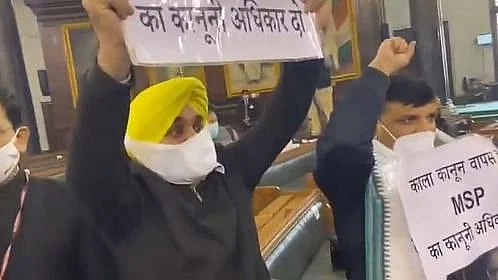 का कानूनी अधिकार दो
काला कानून वापस
MSP
का कानूनी अधिकार